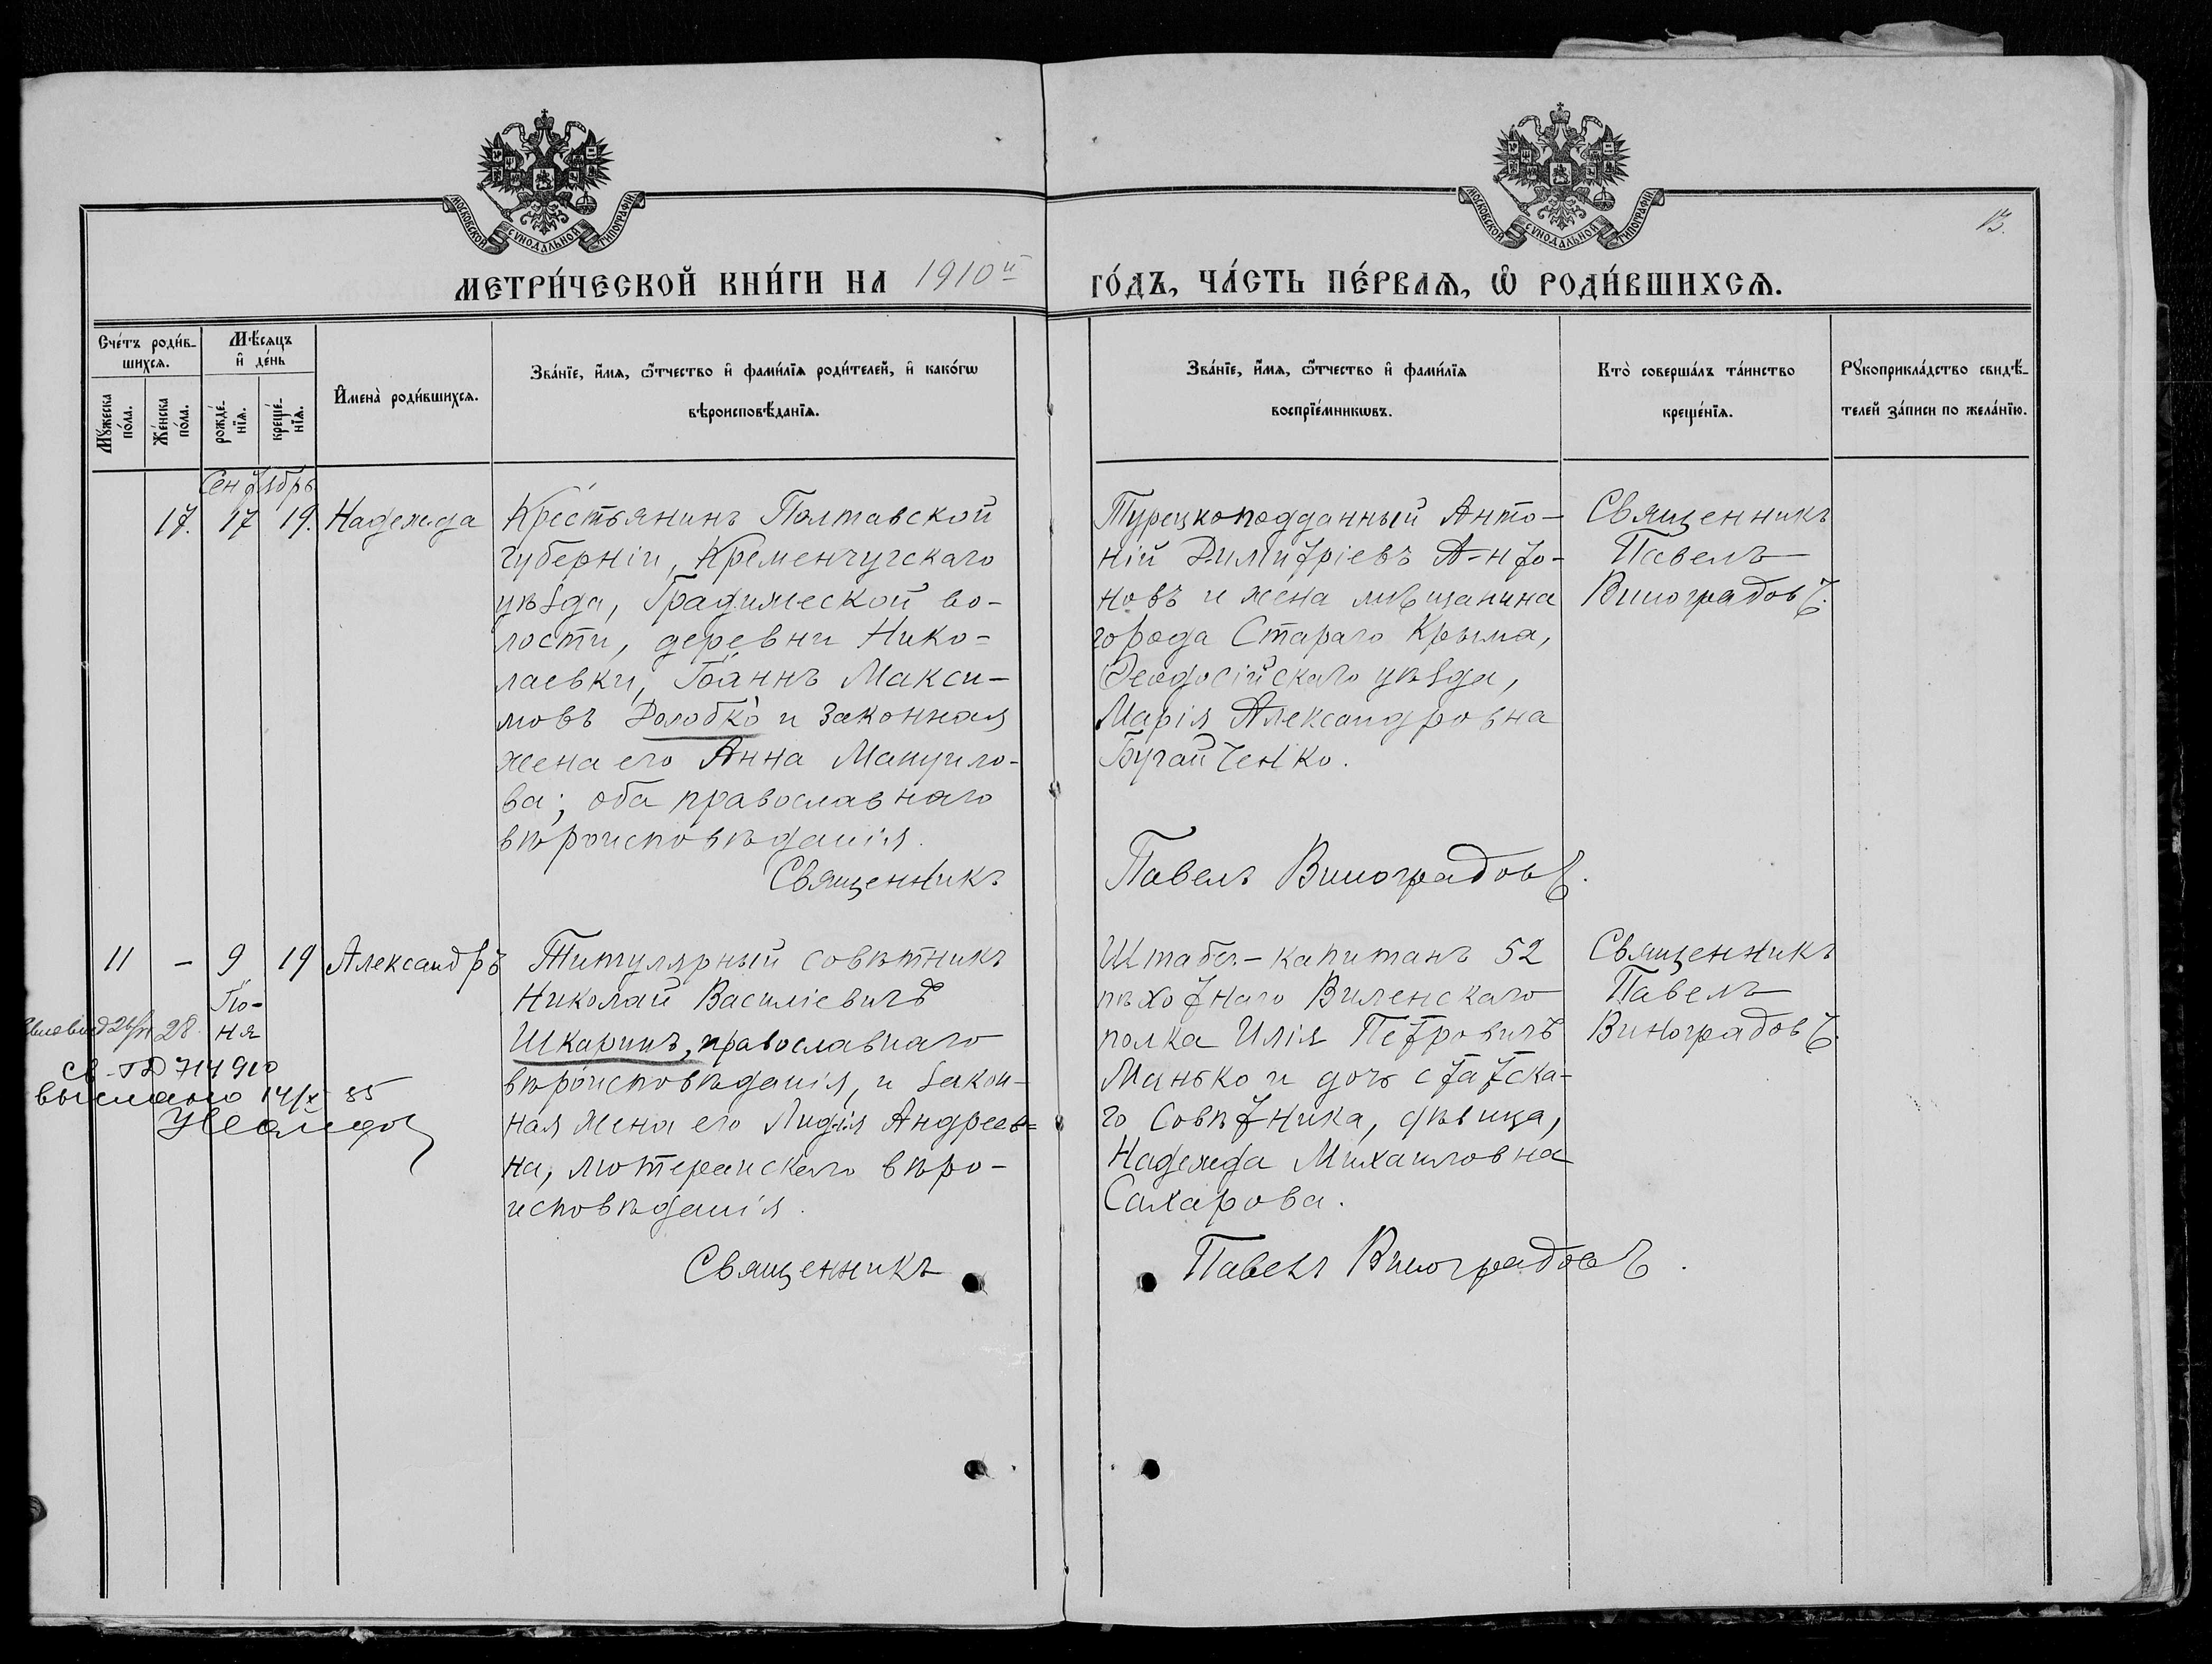 МОСКОВСКОЙ СѴНОДАЛЬНОЙ ТИПОГРАФІИ
МОСКОВСКОЙ СѴНОДАЛЬНОЙ ТИПОГРАФІИ
13.
МЕТРИ́ЧЕСКОЙ КНИ́ГИ НА 1910й ГО́ДЪ, ЧА́СТЬ ПЕ́РВАѦ, Ѡ҆ РОДИ́ВШИХСѦ.
Сче́тъ роди́в-
шихсѧ.
Мꙋ́жеска
по́ла.
Же́нска
по́ла.
Мѣ́сяцъ
и҆ де́нь
рожде́-
нїѧ.
креще́-
нїѧ.
И҆мена̀ роди́вшихсѧ.
Зва́нїе, и҆́мѧ, ѻ҆́тчество и҆ фами́лїѧ роди́телей, и҆ како́гѡ
вѣроисповѣ́данїѧ.
Зва́нїе, и҆́мѧ, ѻ҆́тчество и҆ фами́лїѧ
воспрїе́мникѡвъ.
Кто̀ соверша́лъ та́инство
креще́нїѧ.
Рꙋкоприкла́дство свидѣ́-
телей за́писи по жела́нїю.
Сентябрь
17. 17 19. Надежда
Крестьянинъ Полтавской
губерніи, Кременчугскаго
уѣзда, Градижеской во-
лости, деревни Нико-
лаевки, Іоаннъ Макси-
мовъ Долобко и законная
жена его Анна Мануило-
ва; оба православнаго
вѣроисповѣданія.
Священникъ
Турецкоподданный Анто-
ній Димитріевъ Анто-
новъ и жена мѣщанина
города Стараго Крыма,
Ѳеодосійскаго уѣзда,
Марія Александровна
Бугайченко.
Павелъ Виноградовъ.
Священникъ
Павелъ
Виноградовъ.
11 - 9 19 Александръ
Ію-
ня
28
св-
714910
выслано 14/X 85
Титулярный совѣтникъ
Николай Василіевичъ
Шкаринъ, православнаго
вѣроисповѣданія, и закон-
ная жена его Лидія Андреев-
на, лютеранскаго вѣро-
исповѣданія.
Священникъ
Штабсъ-капитанъ 52
пѣхотнаго Виленскаго
полка Илія Петровичъ
Манько и дочь статска-
го совѣтника, дѣвица,
Надежда Михаиловна
Сахарова.
Павелъ Виноградовъ.
Священникъ
Павелъ
Виноградовъ.